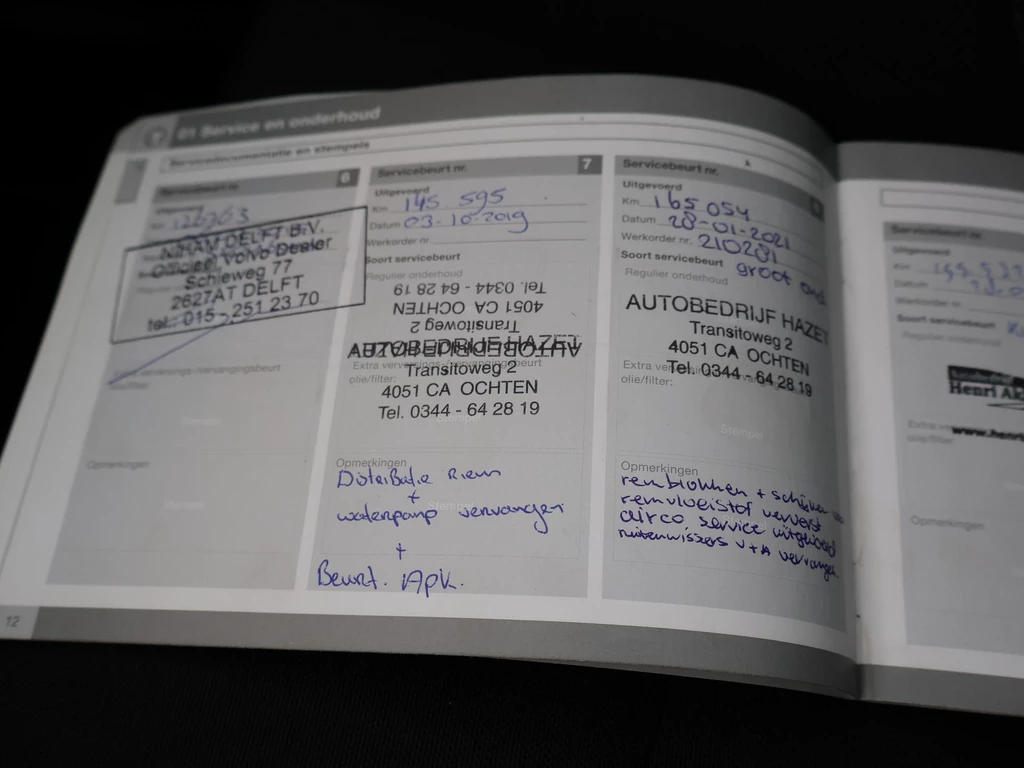 01 Service en onderhoud
Servicedocumentatie en stempels
Servicebeurt nr. 6
Km 126763
NIHAM DELFT B.V.
Officieel Volvo Dealer
Schieweg 77
2627AT DELFT
tel.: 015 - 251 23 70
Opmerkingen
Stempel
12
Servicebeurt nr. 7
Uitgevoerd
Km 145 595
Datum 03-10-2019
Werkorder nr.
Soort servicebeurt
Regulier onderhoud
Tel. 0344 - 64 28 19
4051 CA OCHTEN
Transitoweg 2
AUTOBEDRIJF HAZET
AUTOBEDRIJF HAZET
Transitoweg 2
Extra verversings-/vervangingsbeurt
olie/filter:
4051 CA OCHTEN
Tel. 0344 - 64 28 19
Stempel
Opmerkingen
Distributie Riem
+
waterpomp vervangen
+
Beurt. Apk.
Servicebeurt nr.
Uitgevoerd
Km 165 054
Datum 28-01-2021
Werkorder nr. 210281
Soort servicebeurt groot
Regulier onderhoud
AUTOBEDRIJF HAZET
Transitoweg 2
4051 CA OCHTEN
Extra
olie/filter:
Tel. 0344 - 64 28 19
Stempel
Opmerkingen
remblokken + schijven
remvloeistof ververst
airco service uitgevoerd
ruitenwissers V+A vervangen
Servicebeurt nr.
Uitgevoerd
Km
Datum
Werkorder nr.
Soort servicebeurt
Henri
Extra
olie/filter:
Opmerkingen